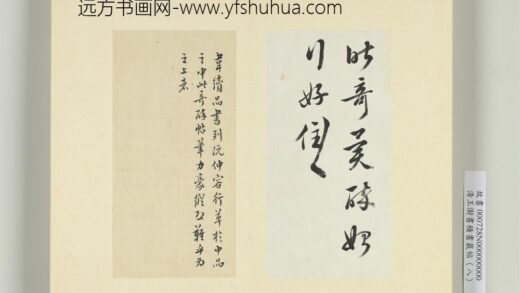 远方书画网-www.yfshuhua.com
此奇異醉如
行好住
韋續品書列阮仲容行草於中品
之中此奇醉帖筆力豪縱又難再为
之上者
故書 000728N000000000
清王澍書積書巖帖(八)